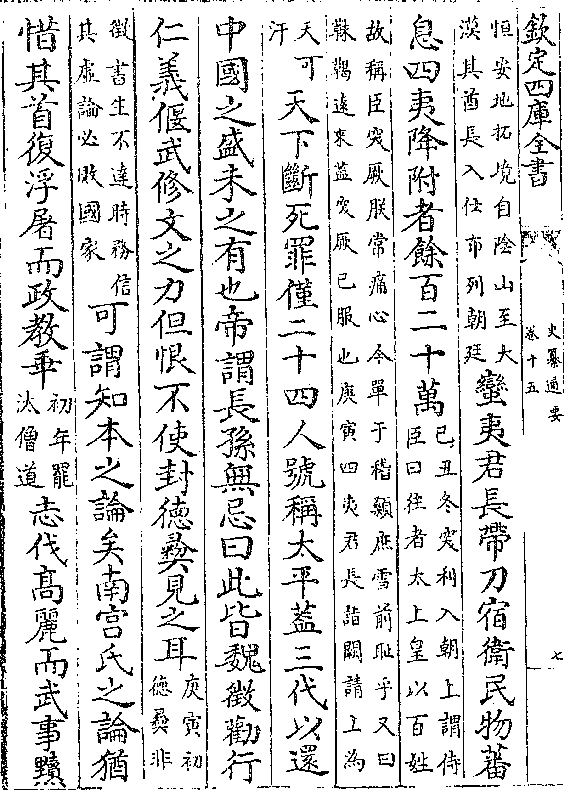 欽定四庫全書
史纂通要
卷十五
七
恒安地拓境自隂山至大
漠其酋長入仕布列朝廷
蠻夷君長帶刀宿衛民物蕃
息四夷降附者餘百二十萬
己丑冬突利入朝上謂侍
臣曰往者太上皇以百姓
故稱臣突厥朕常痛心今單于稽顙庶雪前耻乎又曰
靺鞨逺來葢突厥已服也庚寅四夷君長詣闕請上為
天可
汗
天下斷死罪僅二十四人號稱太平葢三代以還
中國之盛未之有也帝謂長孫無忌曰此皆魏徵勸行
仁義偃武修文之力但恨不使封徳彞見之耳
庚寅初
徳彞非
徵書生不達時務信
其虛論必敗國家
可謂知本之論矣南宫氏之論猶
惜其首復浮屠而政教乖
初年罷
汰僧道
志伐髙麗而武事黷